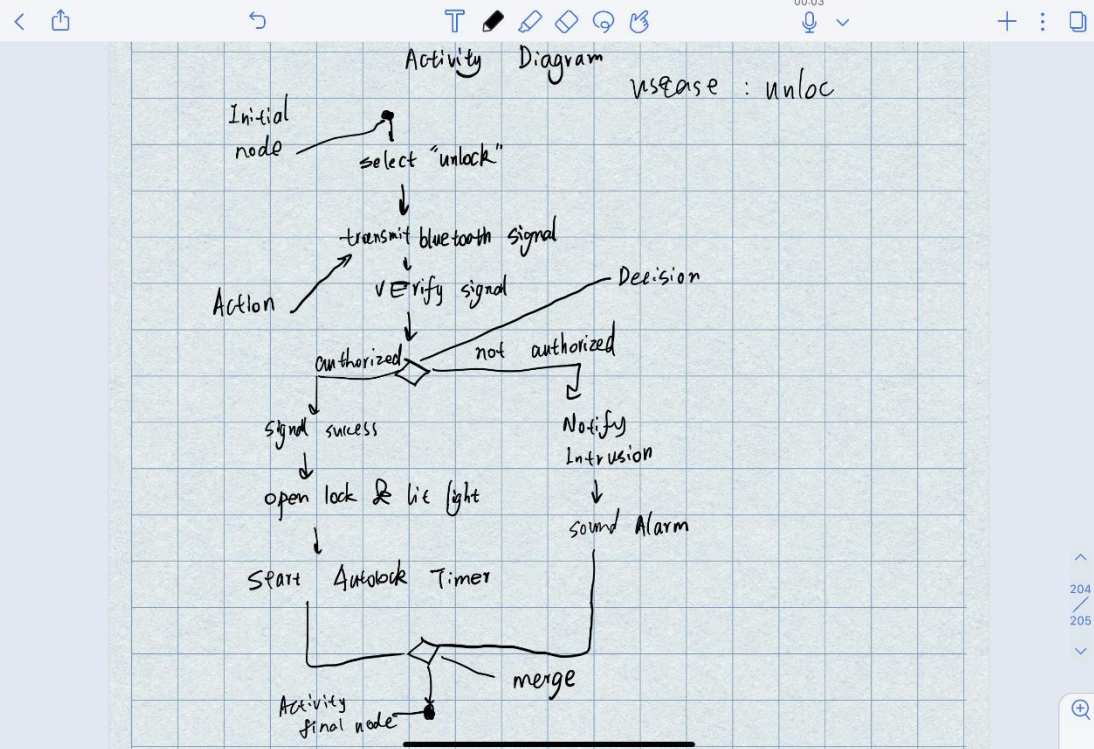 00:03
Activity Diagram
usecase : unloc
Initial
node
select "unlock"
transmit bluetooth signal
Action
VErify signal
Decision
authorized
not authorized
signal success
Notify
Intrusion
open lock & lit light
sound Alarm
Start Autolock Timer
merge
Activity
final node
204
205